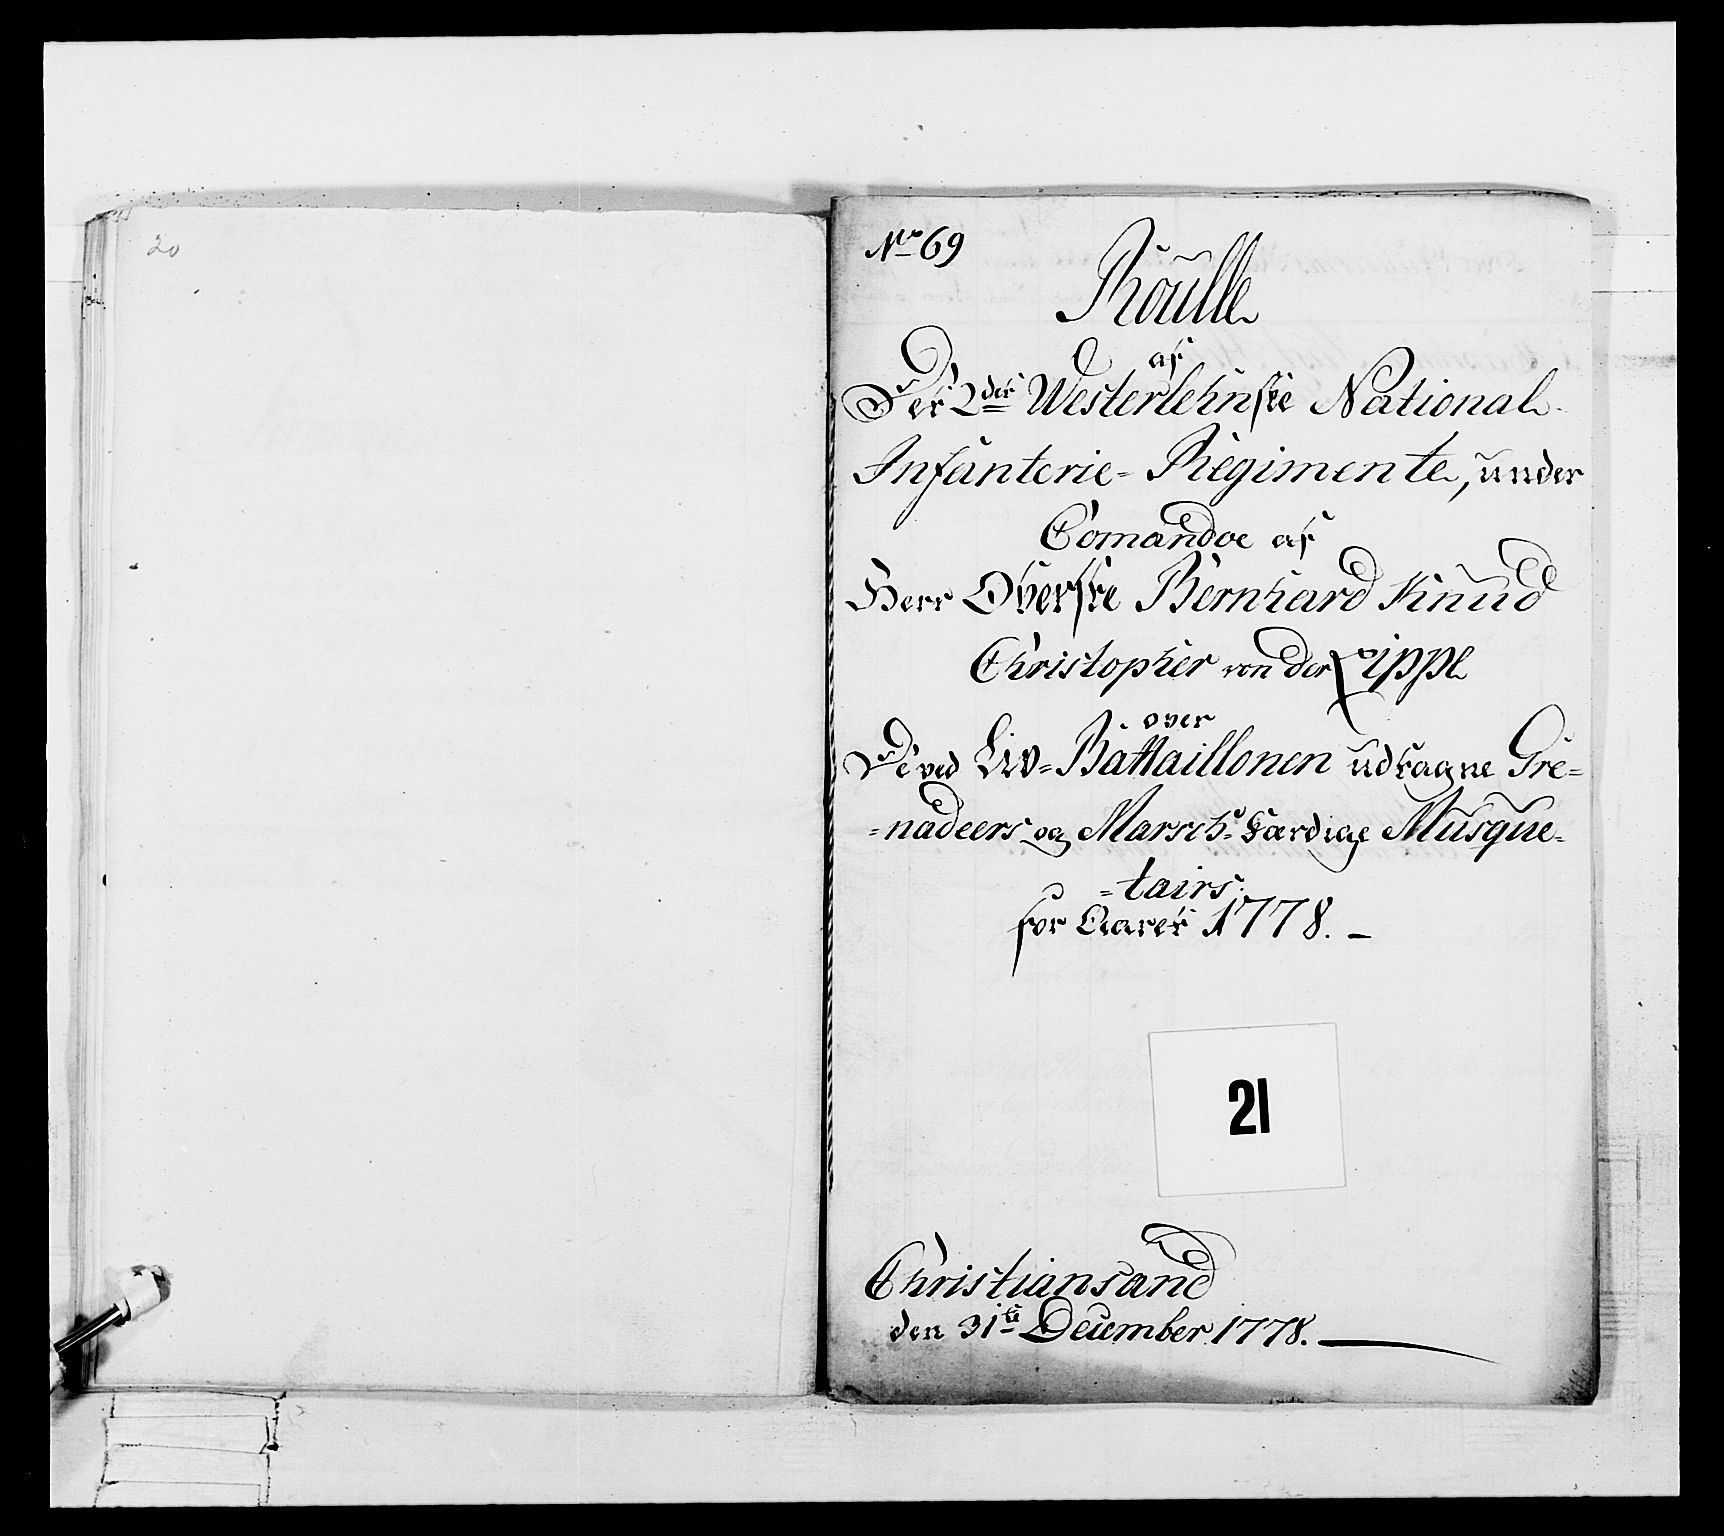 20
No 69
Roulle
af
Det 2det Westerlehnske National
Infanterie-Regimente, under
Comandoe af
Herr Øverste Bernhard Knud
Christopher von der Lippe
over
De ved Liv-Battaillonen udtagne Gre=
=nadeers og Marsch-færdige Musque=
=tairs.
for Aaret 1778.-
21
Christiansand
den 31te December 1778.